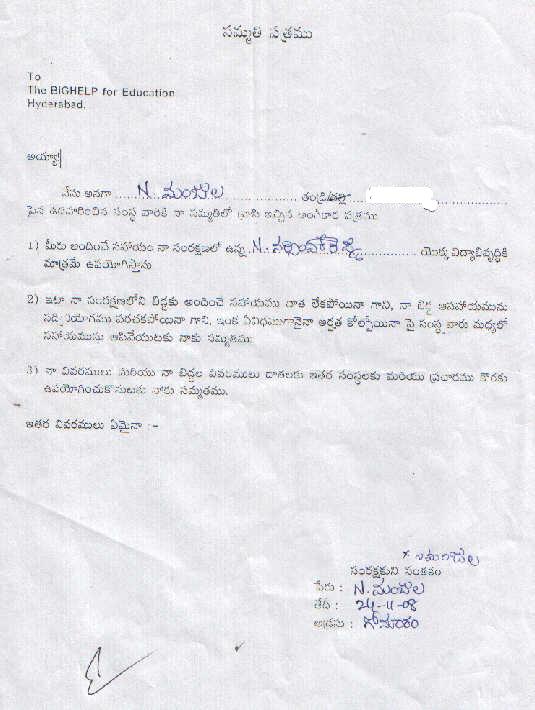 సమ్మతి పత్రము
To
The BIGHELP for Education
Hyderabad.
అయ్యా!
నేను అనగా N. మంజుల తండ్రి/తల్లి
పైన ఉదహరించిన సంస్థ వారికి నా సమ్మతితో వ్రాసి ఇచ్చిన అంగీకార పత్రము
1) మీరు అందించే సహాయం నా సంరక్షణలో ఉన్న N. నర్సింహారెడ్డి యొక్క విద్యాభివృద్ధికి
మాత్రమే ఉపయోగిస్తాను
2) ఇటా నా సంరక్షణలోని బిడ్డకు అందించే సహాయము దాత లేకపోయినా గాని, నా బిడ్డ ఆసహాయమును
సద్వినియోగము పరచకపోయినా గాని, ఇంక ఏవిధముగానైనా అర్హత కోల్పోయినా పై సంస్థ వారు మధ్యలో
సహాయమును ఆపివేయుటకు నాకు సమ్మతము
3) నా వివరములు మరియు నా బిడ్డల వివరములు దాతలకు ఇతర సంస్థలకు మరియు ప్రచారము కొరకు
ఉపయోగించుకొనుటకు నాకు సమ్మతము.
ఇతర వివరములు ఏమైనా :-
x మంజుల
సంరక్షకుని సంతకం
పేరు : N. మంజుల
తేది : 24-11-08
అడ్రసు : గోమారం